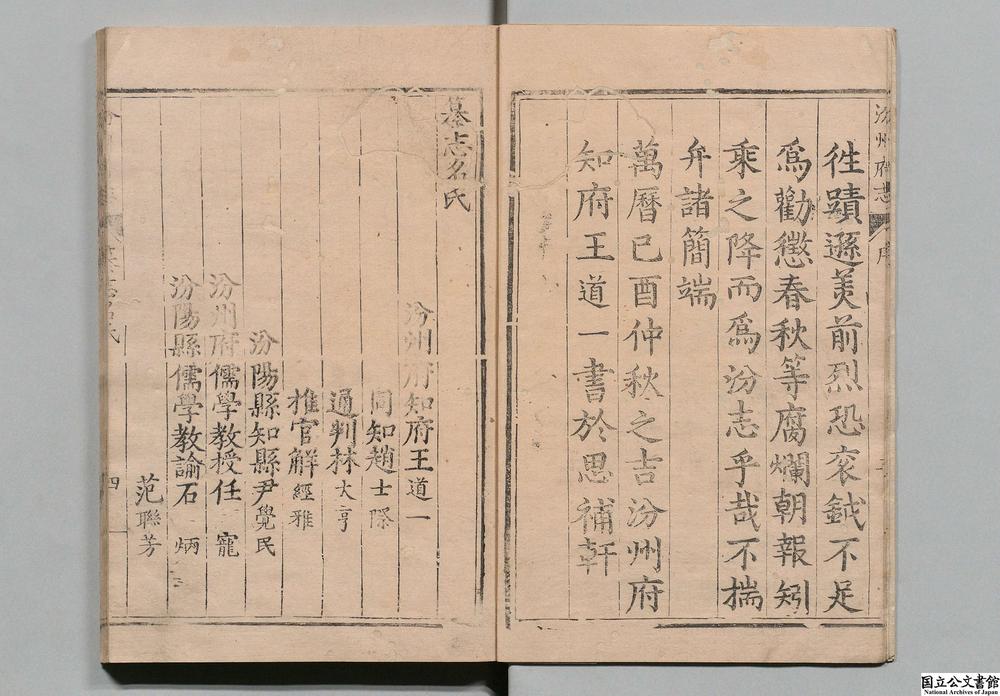 汾州府志 序
徃蹟遜美前烈恐衮鉞不足
爲勸懲春秋等腐爛朝報矧
乘之降而爲汾志乎哉不揣
弁諸簡端
萬曆己酉仲秋之吉汾州府
知府王道一書於思補軒
纂志名氏
汾州府知府王道一
同知趙士際
通判林大亨
推官解經雅
汾陽縣知縣尹覺民
汾州府儒學教授任寵
汾陽縣儒學教諭石炳
范聯芳
四
国立公文書館
National Archives of Japan